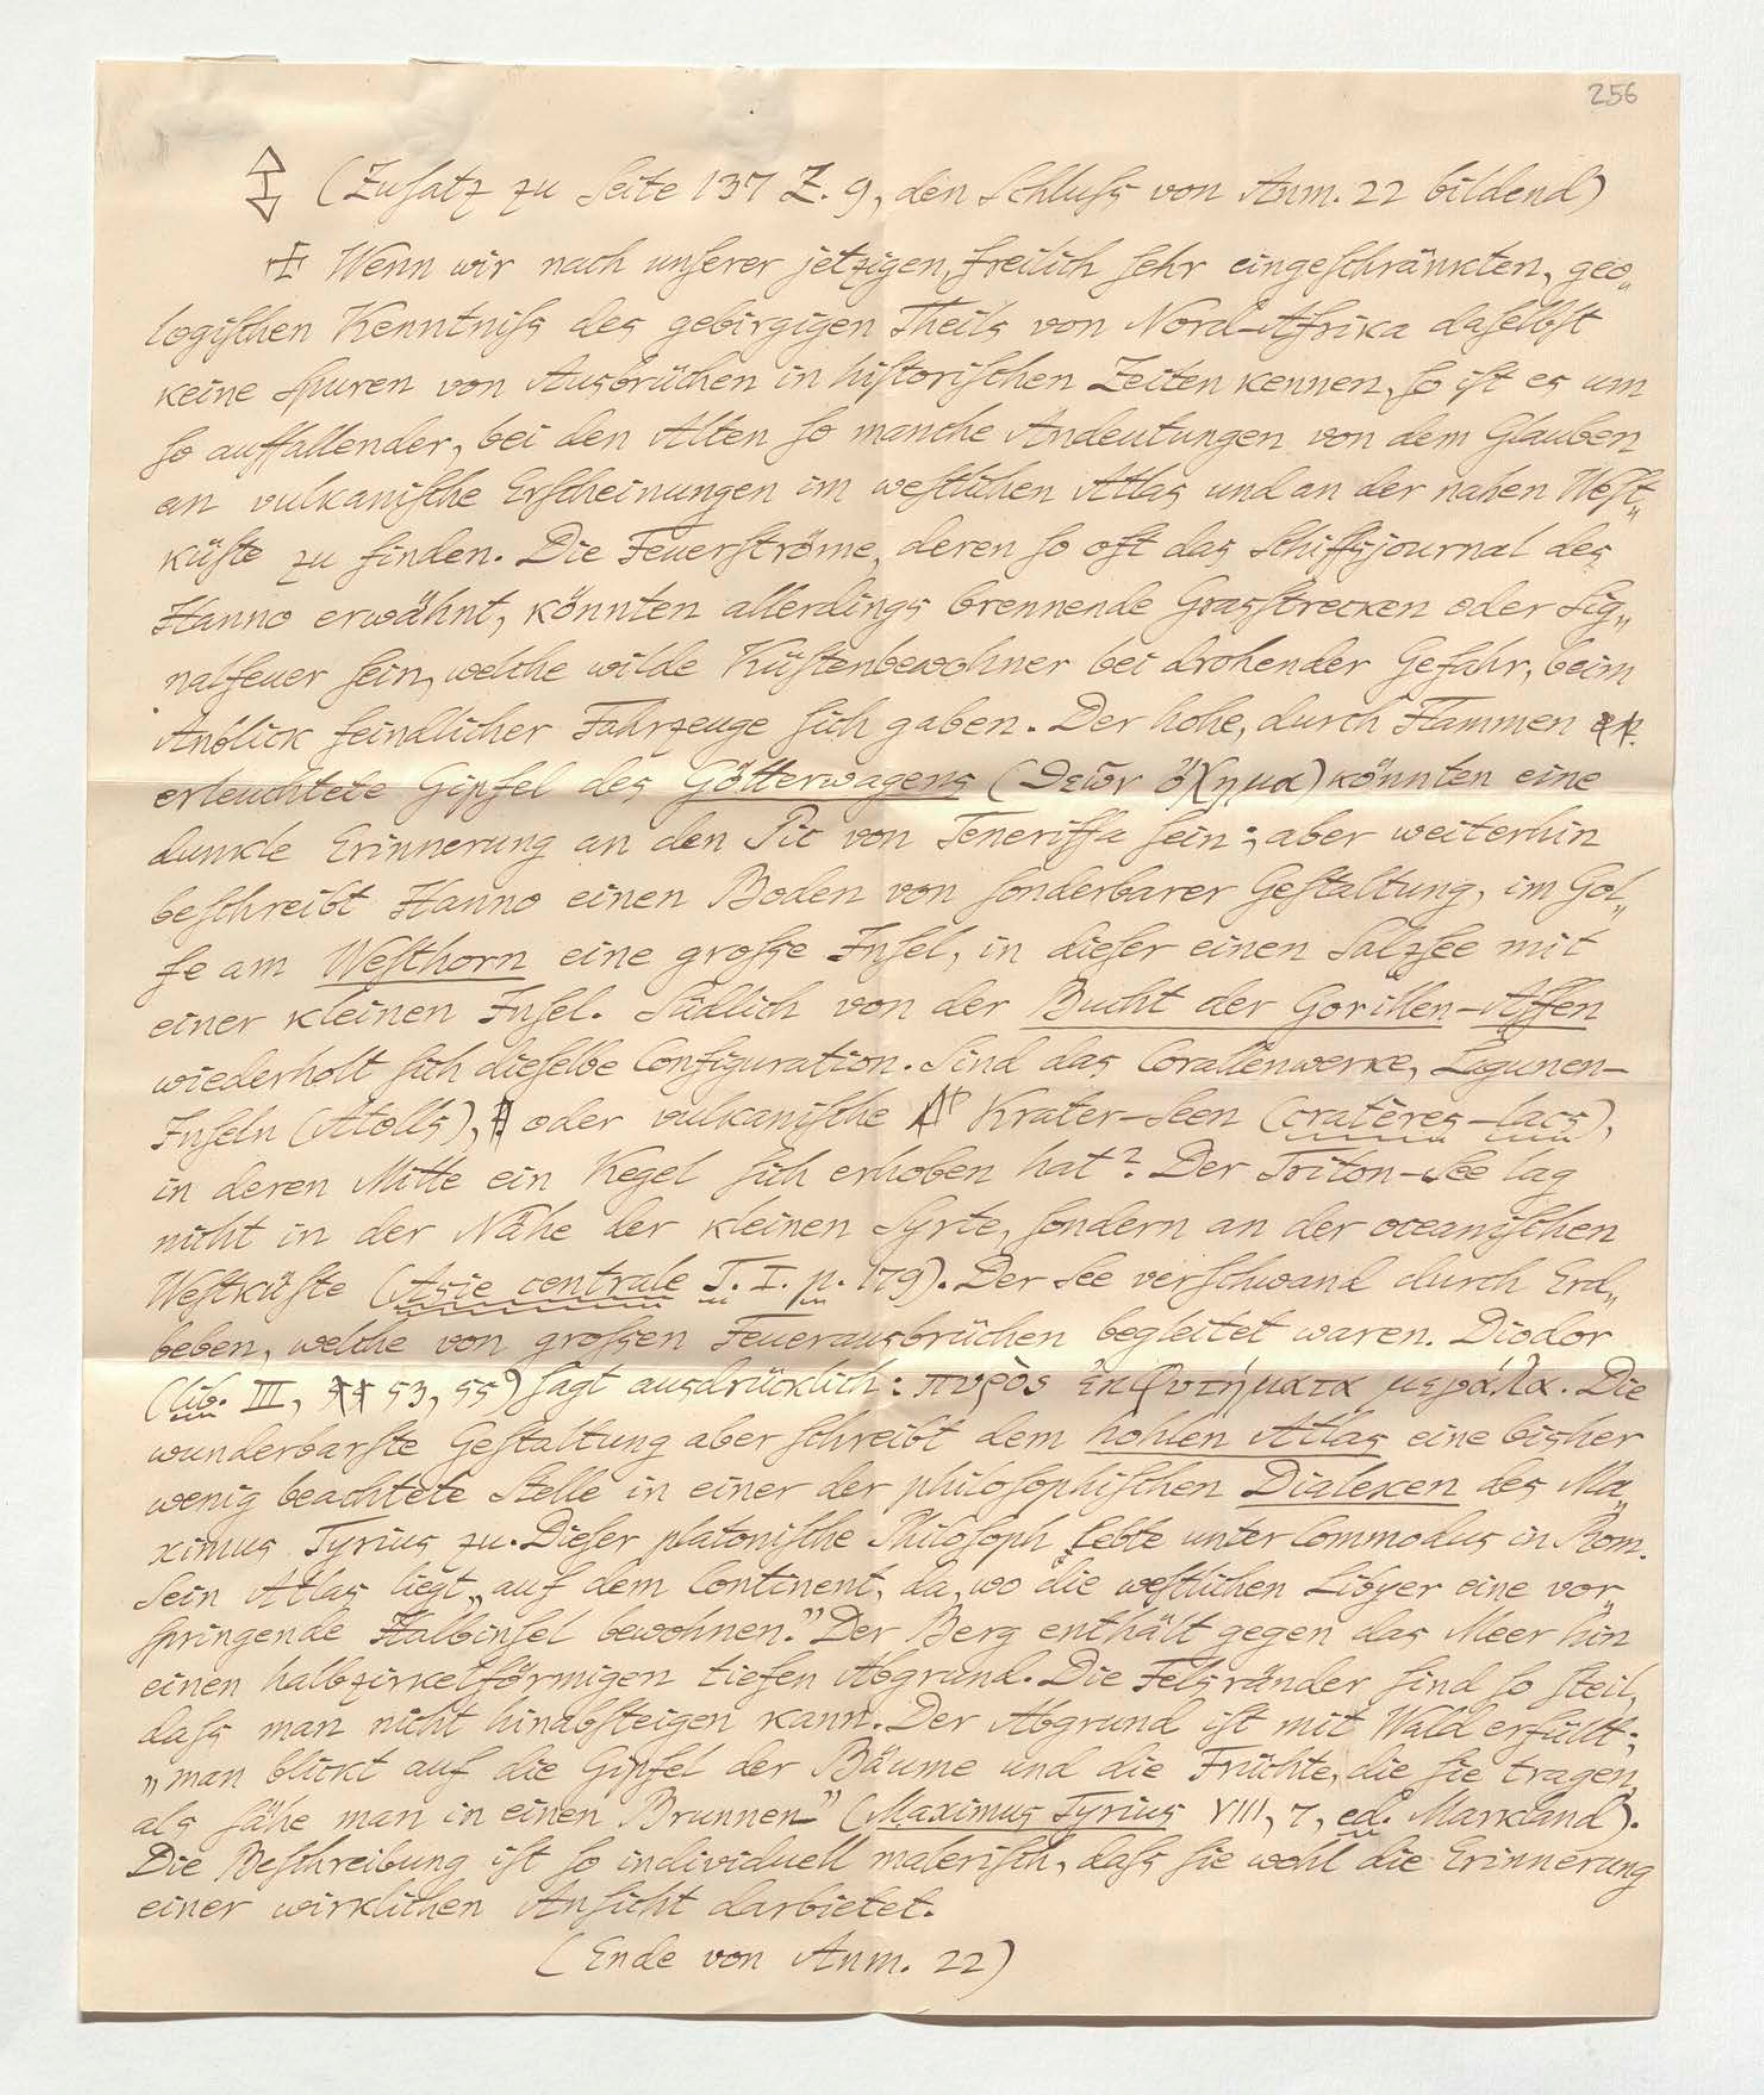 256
(Zusatz zu Seite 137 Z. 9, den Schluss von Anm. 22 bildend)
Wenn wir nach unserer jetzigen, freilich sehr eingeschränkten, geo„
logischen Kenntniss des gebirgigen Theils von Nord-Afrika daselbst
keine Spuren von Ausbrüchen in historischen Zeiten kennen, so ist es um
so auffallender, bei den Alten so manche Andeutungen von dem Glauben
an vulkanische Erscheinungen im westlichen Atlas und an der nahen West„
küste zu finden. Die Feuerströme, deren so oft das Schiffsjournal des
Hanno erwähnt, könnten allerdings brennende Grasstrecken oder Sig„
nalfeuer sein, welche wilde Küstenbewohner bei drohender Gefahr, beim
Anblick feindlicher Fahrzeuge sich gaben. Der hohe, durch Flammen
erleuchtete Gipfel des Götterwagens (Θεῶν ὄχημα) könnten eine
dunkle Erinnerung an den Pic von Teneriffa sein; aber weiterhin
beschreibt Hanno einen Boden von sonderbarer Gestaltung, im Gol„
fe am Westhorn eine grosse Insel, in dieser einen Salzsee mit
einer kleinen Insel. Südlich von der Bucht der Gorillen-Affen
wiederholt sich dieselbe Configuration. Sind das Corallenwerke, Lagunen-
Inseln (Atolls), oder vulkanische Krater-Seen (cratères-lacs),
in deren Mitte ein Kegel sich erhoben hat? Der Triton-See lag
nicht in der Nähe der kleinen Syrte, sondern an der oceanischen
Westküste (Asie centrale T. I. p. 179). Der See verschwand durch Erd„
beben, welche von grossen Feuerausbrüchen begleitet waren. Diodor
(lib. III, 53, 55) sagt ausdrücklich: πυρὸς ἐκφυσήματα μεγάλα. Die
wunderbarste Gestaltung aber schreibt dem hohlen Atlas eine bisher
wenig beachtete Stelle in einer der philosophischen Dialexen des Ma„
ximus Tyrius zu. Dieser platonische Philosoph lebte unter Commodus in Rom.
Sein Atlas liegt „auf dem Continent, da, wo die westlichen Libyer eine vor„
springende Halbinsel bewohnen.” Der Berg enthält gegen das Meer hin
einen halbzirkelförmigen tiefen Abgrund. Die Felsränder sind so steil,
dass man nicht hinabsteigen kann. Der Abgrund ist mit Wald erfüllt;
„man blickt auf die Gipfel der Bäume und die Früchte, die sie tragen,
als sähe man in einen Brunnen” (Maximus Tyrius VIII, 7, ed. Markland).
Die Beschreibung ist so individuell malerisch, dass sie wohl die Erinnerung
einer wirklichen Ansicht darbietet.
(Ende von Anm. 22)